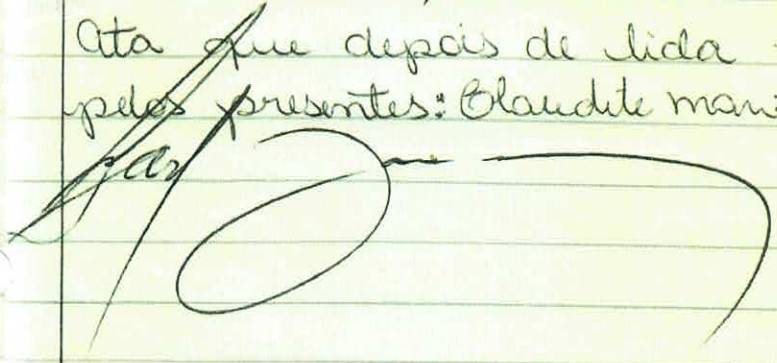 Ata que depois de lida
pelos presentes: Claudete mari